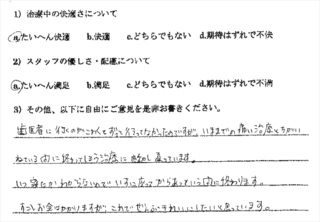 1) 治療中の快適さについて
a.たいへん快適 b.快適 c.どちらでもない d.期待はずれで不快
2) スタッフの優しさ・配慮について
a.たいへん満足 b.満足 c.どちらでもない d.期待はずれで不満
3) その他、以下に自由にご意見を是非お書きください。
歯医者に行くのがこわくてずっと行ってなかったのですが、いままでの痛い治療とちがい
ねている内に終わってしまう治療に感動し通っています。
いつ寝たかわからないので いすに座ってからあっという間に終わります。
すこしお金はかかりますが、これでぜんぶきれいにしたいと思っています。